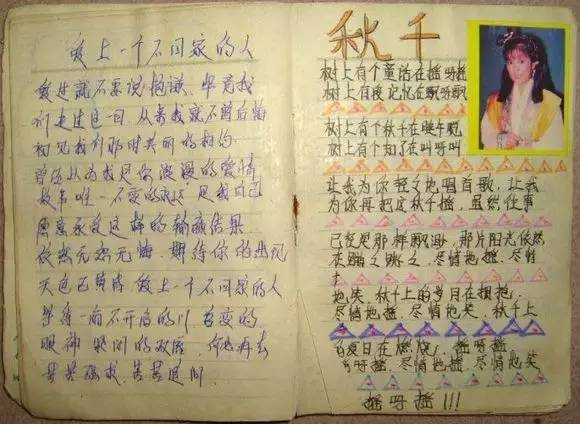 爱上一个不回家的人
爱过就不要说抱谦，毕竟我
们走过这一回，从来我就不曾后悔
初见我们那时美丽的相约
曾经以为我是你浪漫的爱情
故事唯一不变的永远，是我自己
愿意承受这样的输赢结果
依然无怨无悔，期待你的出现
天色已黄昏，爱上一个不回家的人
等待一扇不开启的门，善变的
眼神紧闭的双唇，何必再去
苦苦强求，苦苦追问
秋千
树上有个童话在摇呀摇
树上有段记忆在飘呀飘
树上有个秋千在
树上有个知了在叫呀叫
让我为你轻轻地唱首歌，让我
为你再把这秋千摇，虽然往事
已经是那样飘渺，那片阳光依然
尽情地摇、尽情
地笑，秋千上的岁月在拥抱，
尽情地摇、尽情地笑，秋千上
夏日在燃烧，摇呀摇
呀摇、尽情地摇、尽情地笑
摇呀摇!!!